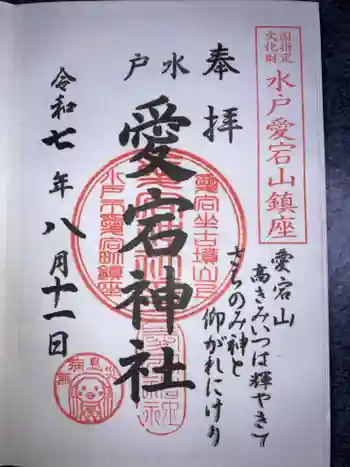 国指定
文化財
水戸愛宕山鎮座
奉拝
水戸
愛宕神社
令和七年八月十一日
愛宕山
高きみいつは輝やきて
さちのみ神と
仰がれにけり
水戸市愛宕町鎮座
無病息災